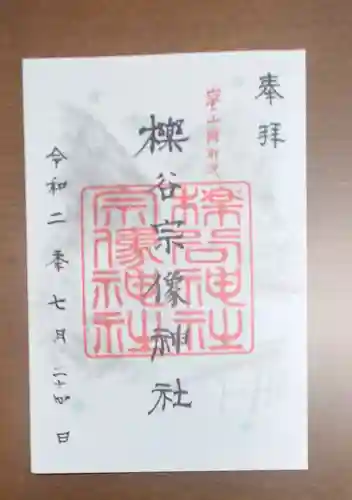 奉拝
櫟谷宗像神社
櫟谷神社
宗像神社
令和二年七月二十四日